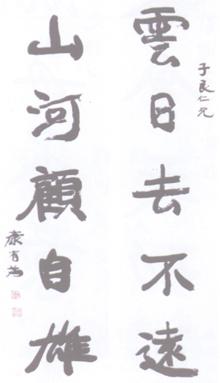 子良仁兄
雲日去不遠
山河顧自雄
康有為